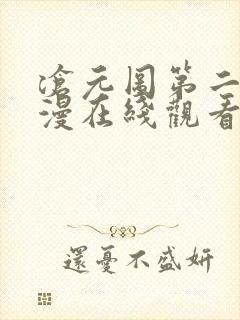 滄元圖第二
漫在綫觀看
還憂不盛妍